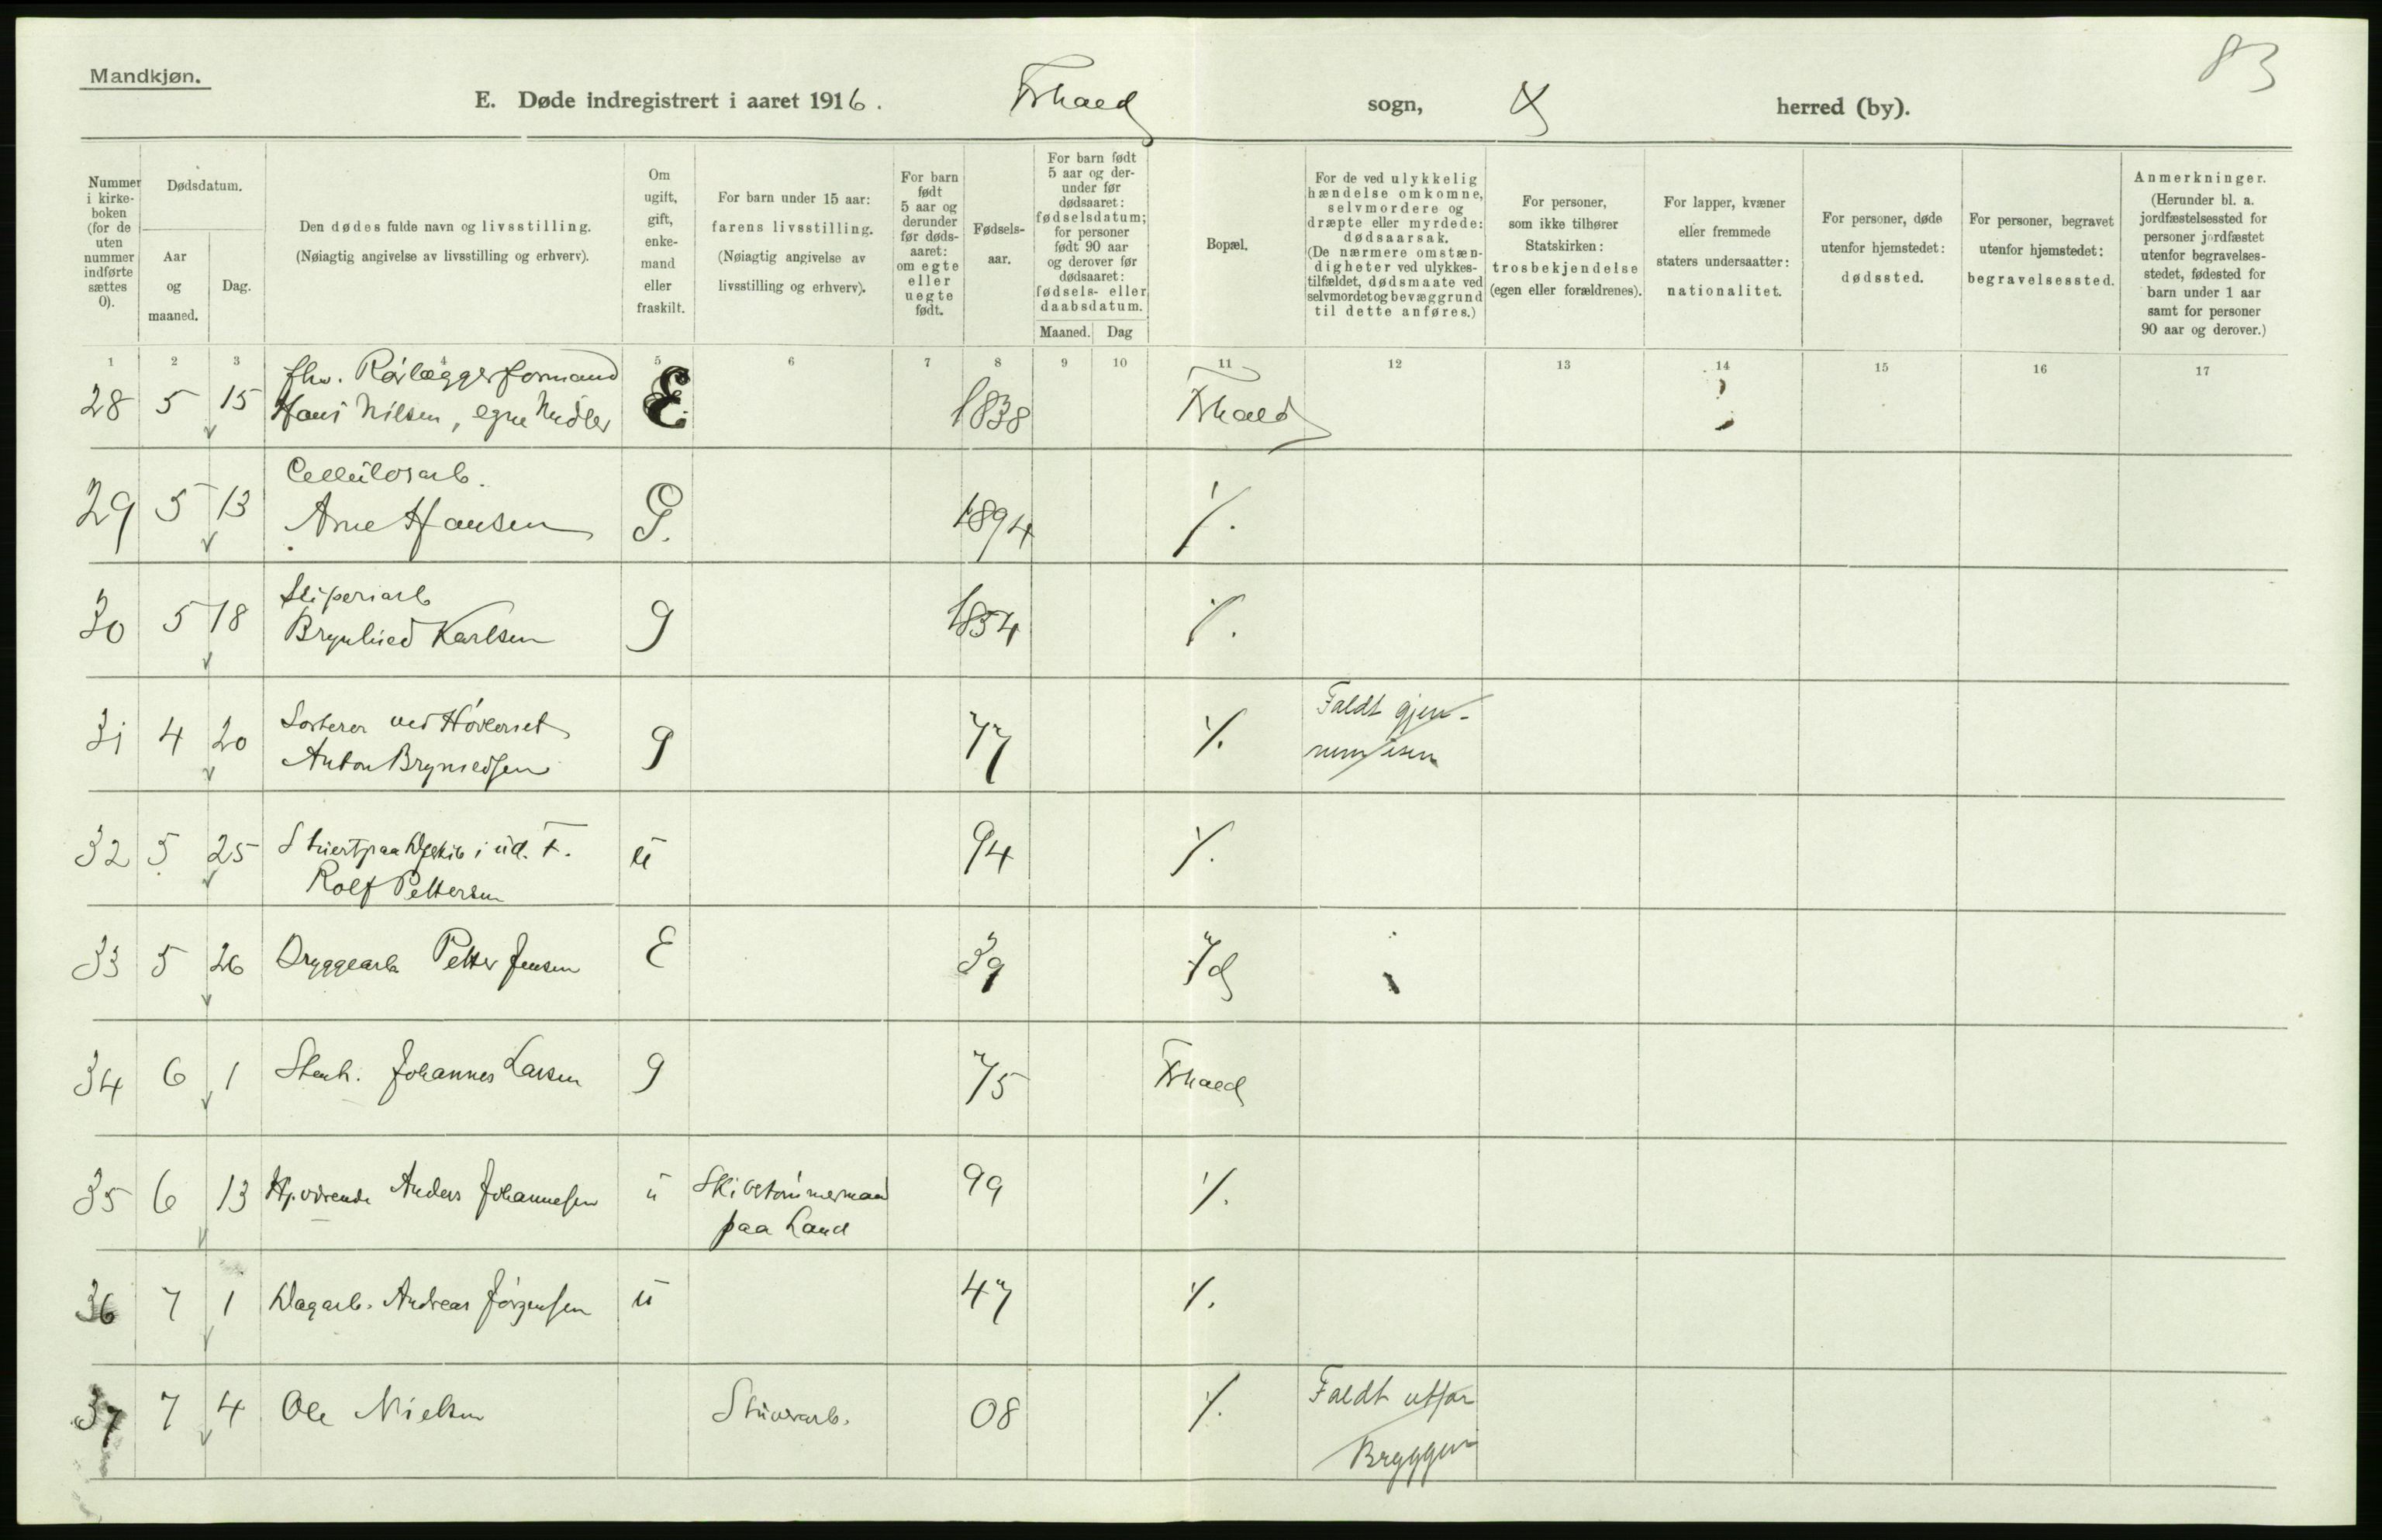 83
Mandkjøn.
E. Døde indregistrert i aaret 1916. Frhald sogn, herred (by).
Nummer i kirke-boken (for de uten nummer indførte sættes 0).
Dødsdatum.
Aar og maaned.
Dag.
Den dødes fulde navn og livsstilling.
(Nøiagtig angivelse av livsstilling og erhverv).
Om ugift, gift, enke-mand eller fraskilt.
For barn under 15 aar: farens livsstilling.
(Nøiagtig angivelse av livsstilling og erhverv).
For barn født 5 aar og derunder før døds-aaret: om egte eller uegte født.
Fødsels-aar.
For barn født 5 aar og der-under før dødsaaret: fødselsdatum; for personer født 90 aar og derover før dødsaaret: fødsels- eller daabsdatum.
Maaned. Dag
Bopæl.
For de ved ulykkelig hændelse omkomne, selvmordere og dræpte eller myrdede: dødsaarsak.
(De nærmere omstæn-digheter ved ulykkes-tilfældet, dødsmaate ved selvmordet og bevæggrund til dette anføres.)
For personer, som ikke tilhører Statskirken: trosbekjendelse (egen eller forældrenes).
For lapper, kvæner eller fremmede staters undersaatter: nationalitet.
For personer, døde utenfor hjemstedet: dødssted.
For personer, begravet utenfor hjemstedet: begravelsessted.
Anmerkninger.
(Herunder bl. a. jordfæstelsessted for personer jordfæstet utenfor begravelses-stedet, fødested for barn under 1 aar samt for personer 90 aar og derover.)
1 2 3 4 5 6 7 8 9 10 11 12 13 14 15 16 17
fhv. Rörlæggerformand
28 5 15 Hans Nilsen, egne Midler E 1838 Frhald
Cellulosarb.
29 5 13 Arne Hansen G. 1894 ٪.
Sliperiarb
30 5 18 Brynhild Karlsen g 1854 ٪.
Sorterer ved Hövleriet
31 4 20 Anton Brynildsen g 77 ٪. Faldt gjen-
nem isen
32 5 25 Stuert paa Dpskib i ud. F. u 94 ٪.
Rolf Pettersen
33 5 26 Bryggearb Petter Jensen E 39 Id
34 6 1 Stenh. Johannes Larsen g 75 Frhald
35 6 13 Hj.værende Anders Johannesen u Skibstömmermand 99 ٪.
paa Land
36 7 1 Dagarb. Andreas Jörgensen u 47 ٪.
37 7 4 Ole Nielsen Stuerarb. 08 ٪. Faldt utfor
Bryggen